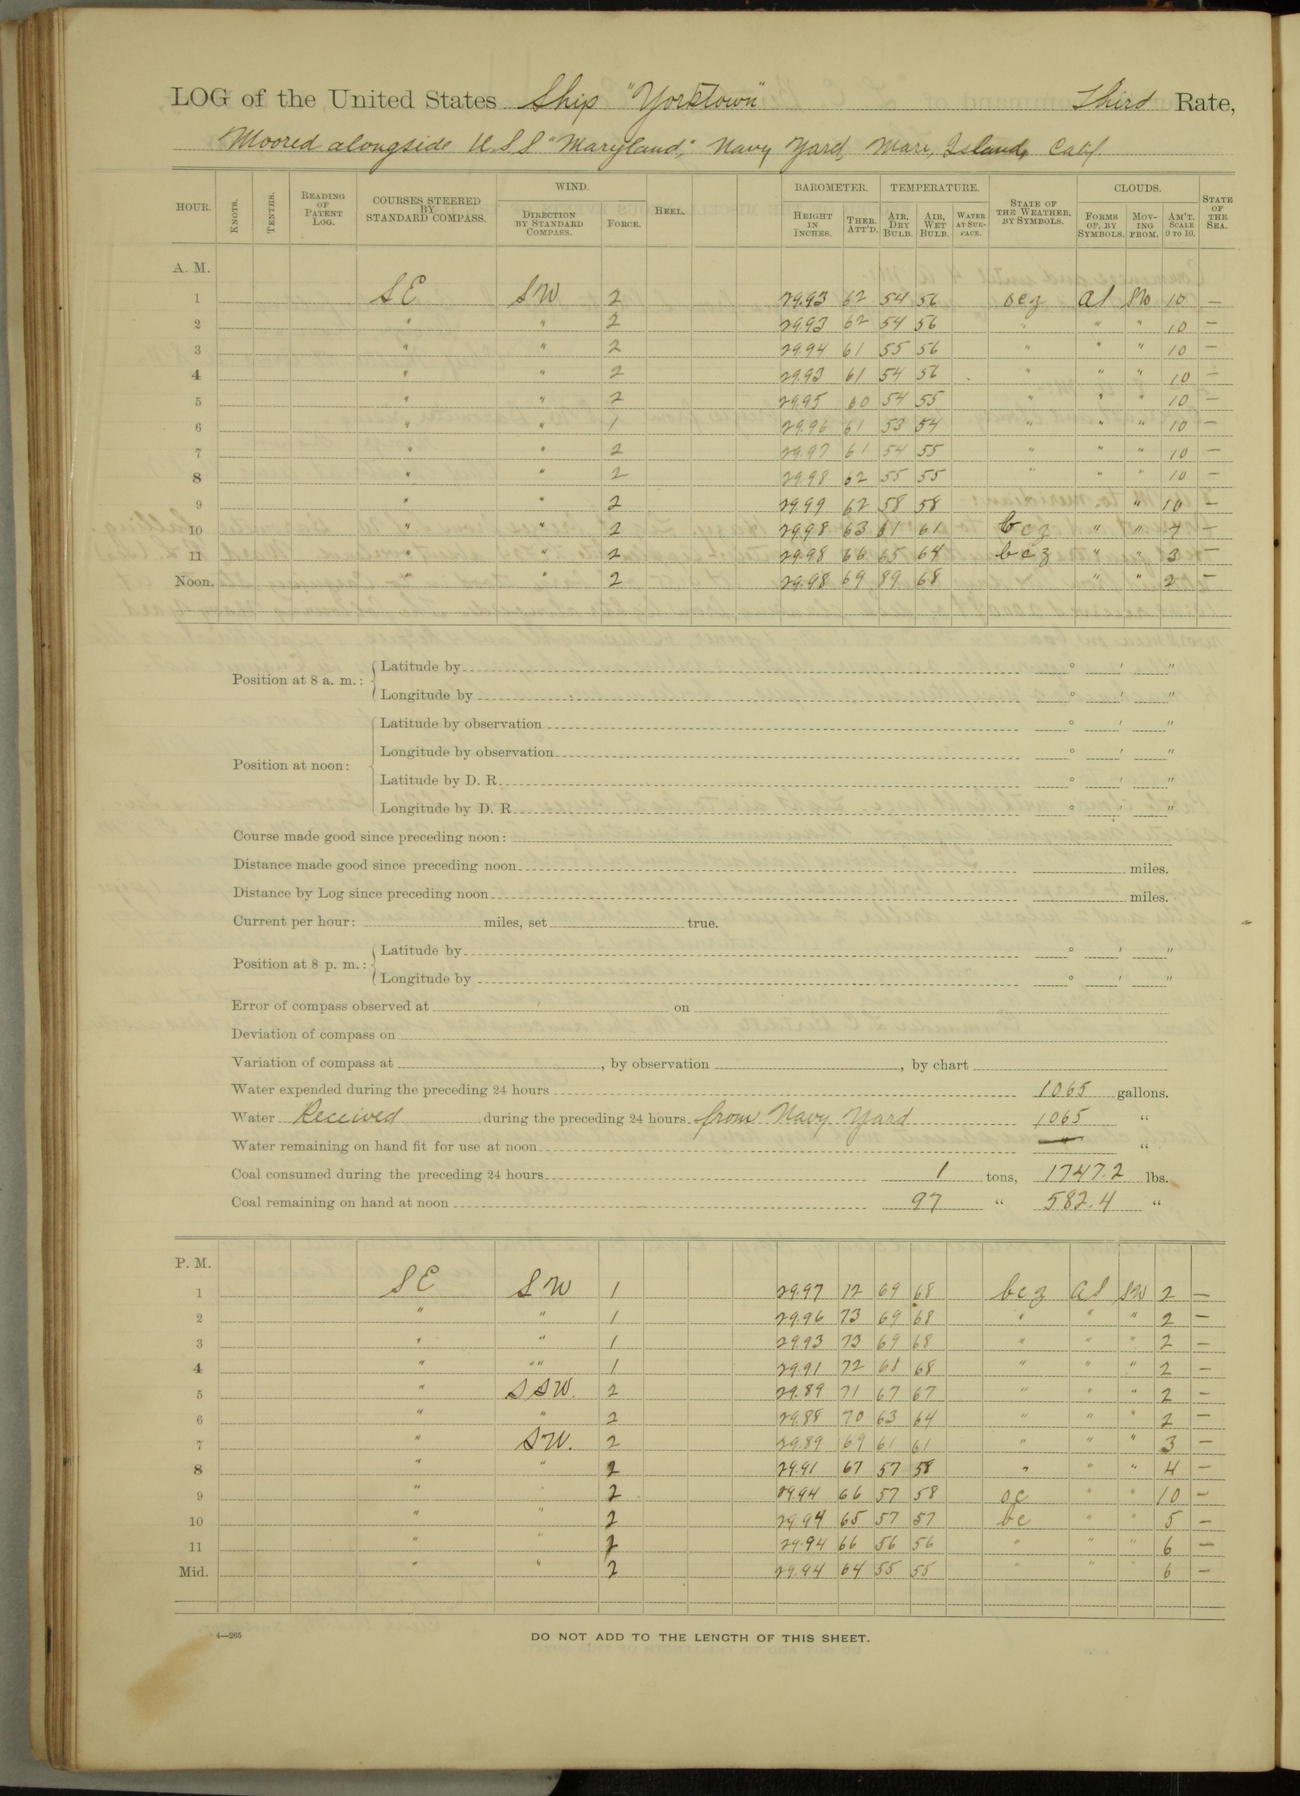 LOG of the United States Ship "Yorktown" Third Rate,
Moored alongside U.S.S "Maryland," Navy Yard, Mare Island, Calif.
HOUR. KNOTS. TENTHS. READING OF PATENT LOG. COURSES STEERED BY STANDARD COMPASS. WIND. DIRECTION BY STANDARD COMPASS. FORCE. HEEL. BAROMETER. HEIGHT IN INCHES. THER. ATT'D. TEMPERATURE. AIR, DRY BULB. AIR, WET BULB. WATER AT SURFACE. STATE OF THE WEATHER, BY SYMBOLS. CLOUDS. FORMS OF, BY SYMBOLS. MOVING FROM. AM'T. SCALE 0 TO 10. STATE OF THE SEA.
A. M.
1 SE SW 2 29.93 62 54 56 ocz aS SW 10 —
2 " " 2 29.93 62 54 56 " " " 10 —
3 " " 2 29.94 61 55 56 " " " 10 —
4 " " 2 29.93 61 54 56 " " " 10 —
5 " " 2 29.95 60 54 55 " " " 10 —
6 " " 1 29.96 61 53 54 " " " 10 —
7 " " 2 29.97 61 54 55 " " " 10 —
8 " " 2 29.98 62 55 55 " " " 10 —
9 " " 2 29.99 62 58 58 " 10 —
10 " " 2 29.98 63 61 61 bcz " " 7 —
11 " " 2 29.98 66 65 64 bcz " " 3 —
Noon. " " 2 29.98 69 89 68 " " 2 —
Position at 8 a. m.: Latitude by ° ′ ″
Longitude by ° ′ ″
Position at noon: Latitude by observation ° ′ ″
Longitude by observation ° ′ ″
Latitude by D. R. ° ′ ″
Longitude by D. R. ° ′ ″
Course made good since preceding noon:
Distance made good since preceding noon miles.
Distance by Log since preceding noon miles.
Current per hour: miles, set true.
Position at 8 p. m.: Latitude by ° ′ ″
Longitude by ° ′ ″
Error of compass observed at on
Deviation of compass on
Variation of compass at , by observation , by chart
Water expended during the preceding 24 hours 1065 gallons.
Water Received during the preceding 24 hours from Navy Yard 1065 "
Water remaining on hand fit for use at noon — "
Coal consumed during the preceding 24 hours 1 tons, 1747.2 lbs.
Coal remaining on hand at noon 97 " 582.4 "
P. M.
1 SE SW 1 29.97 72 69 68 bcz aS SW 2 —
2 " " 1 29.96 73 69 68 " " " 2 —
3 " " 1 29.93 73 69 68 " " " 2 —
4 " " 1 29.91 72 68 68 " " " 2 —
5 " SSW. 2 29.89 71 67 67 " " " 2 —
6 " " 2 29.88 70 63 64 " " " 2 —
7 " SW. 2 29.89 69 61 61 " " " 3 —
8 " " 2 29.91 67 57 58 " " " 4 —
9 " " 2 29.94 66 57 58 oc " " 10 —
10 " " 2 29.94 65 57 57 bc " " 5 —
11 " " 2 29.94 66 56 56 " " " 6 —
Mid. " " 2 29.94 64 55 55 " " " 6 —
4—265
DO NOT ADD TO THE LENGTH OF THIS SHEET.